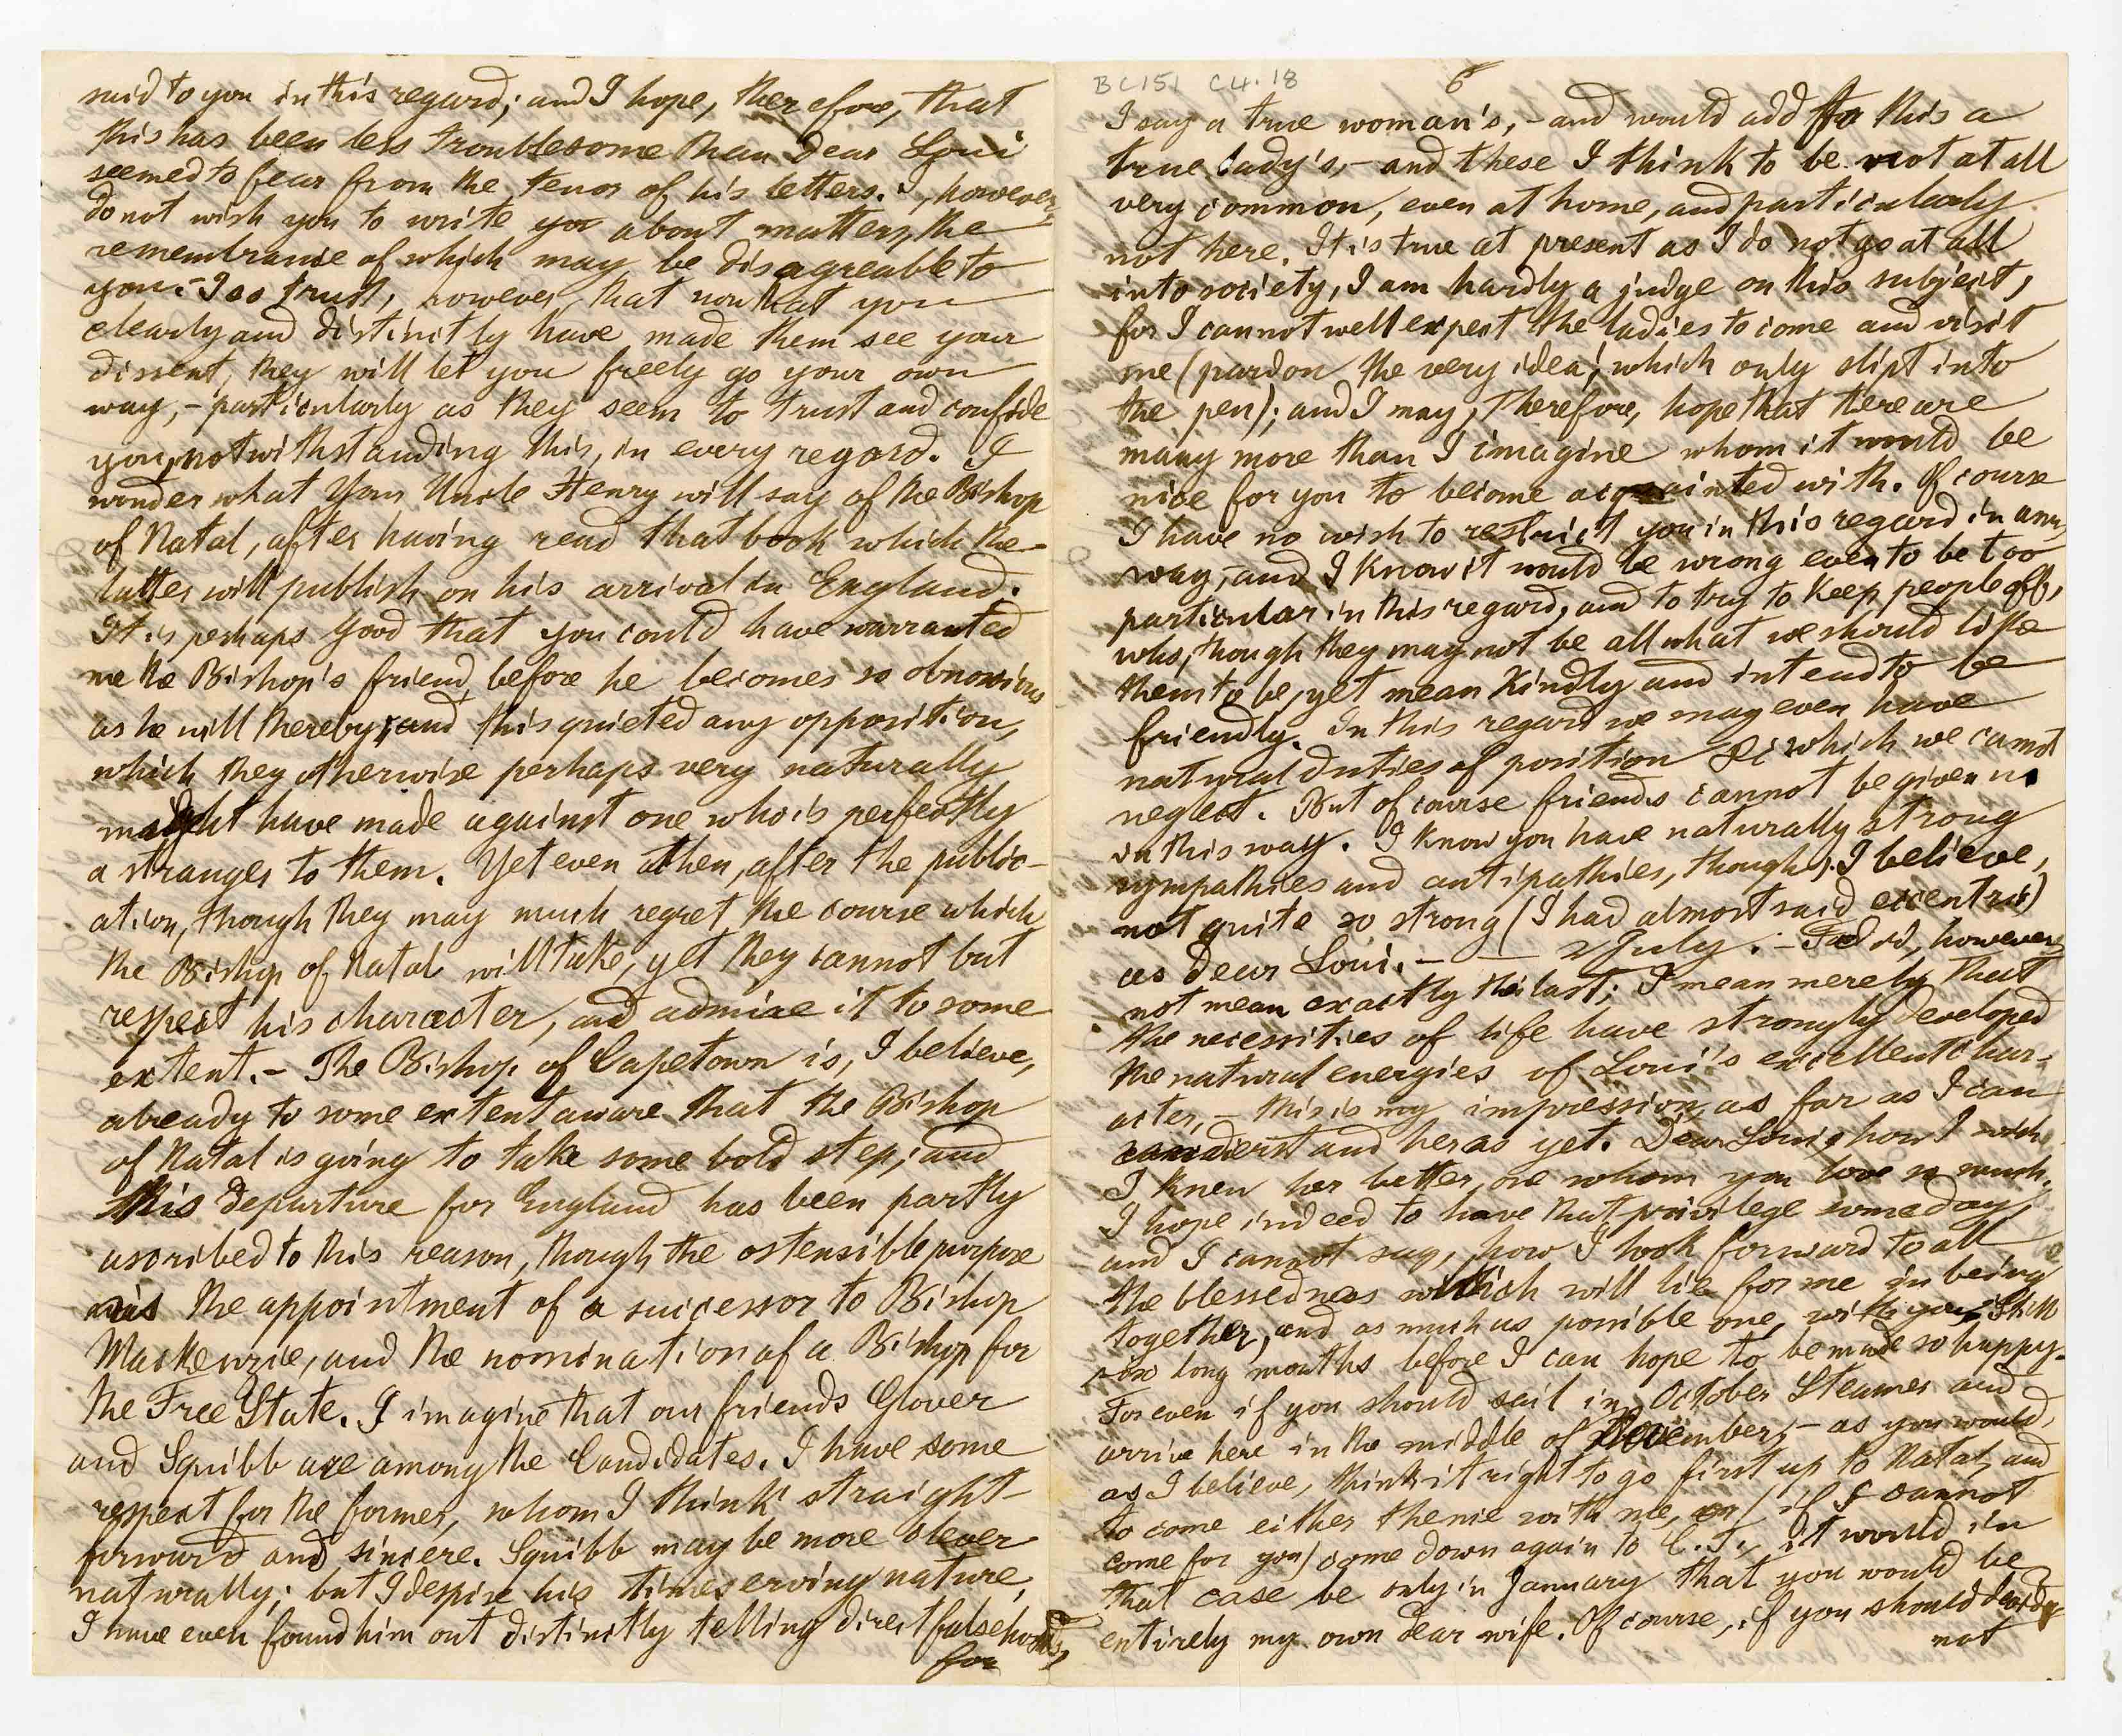 said to you in this regard; and I hope, therefore, that
this has been less troublesome than dear Loui
seemed to fear from the tenor of his letters. I, however,
do not wish you to write you about matters, the
remembrance of which may be disagreable to
you. – I do trust, however, that now that you
clearly and distinctly have made them see your
dissent, they will let you freely go your own
way, – particularly as they seem to trust and confide
you, notwithstanding this, in every regard. I
wonder what Your Uncle Henry will say of the Bishop
of Natal, after having read that book which the
latter will publish on his arrival in England.
It is perhaps good that you could have warranted
me the Bishop's friend, before he becomes so obnoxious
as he will thereby, and this quieted any opposition,
which they otherwise perhaps very naturally
might have made against one who is perfectly
a stranger to them. Yet even then, after the public-
ation, though they may much regret the course which
the Bishop of Natal will take, yet they cannot but
respect his character, and admire it to some
extent. – The Bishop of Capetown is, I believe,
already to some extent aware that the Bishop
of Natal is going to take some bold step; and
this departure for England has been partly
ascribed to this reason, though the ostensible purpose
was the appointment of a successor to Bishop
Mackenzie, and the nomination of a Bishop for
the Free State. I imagine that our friends Glover
and Squibb are among the Candidates. I have some
respect for the former, whom I think straight-
forward and sincere. Squibb may be more clever
naturally; but I despise his timeserving nature,
I have even found him out distinctly telling direct falsehoods,
for
BC151 C4.18
6
I say a true woman's, – and would add to this a
true lady's, – and these I think to be not at all
very common, even at home, and particularly
not here. It is true at present as I do not go at all
into society, I am hardly a judge on this subject,
for I cannot well expect the ladies to come and visit
me (pardon the very idea, which only slipt into
the pen); and I may, therefore, hope that there are
many more than I imagine whom it would be
nice for you to become acquainted with. Of course
I have no wish to restrict you in this regard in any
way, and I know it would be wrong even to be too
particular in this regard, and to try to keep people off,
who, though they may not be all what we should like
them to be, yet mean kindly and intend to be
friendly. In this regard we may even have
natural duties of position &c which we cannot
neglect. But of course friends cannot be given us
in this way. I know you have naturally strong
sympathies and antipathies, though, I believe,
not quite so strong (I had almost said excentric)
as dear Loui. – — 2 July. – I do, however,
not mean exactly the last; I mean merely that
the necessities of life have strongly developed
the natural energies of Loui's excellent char-
acter, – this is my impression, as far as I can
understand her as yet. Dear Loui, how I wish
I knew her better, one whom you love so much.
I hope indeed to have that privilege some day,
and I cannot say, how I look forward to all
the blessedness which will lie for me in being
together, and as much as possible one, with you. Still
six long months before I can hope to be made so happy.
For even if you should sail in October Steamer and
arrive here in the middle of November, – as you would,
as I believe, think it right to go first up to Natal, and
to come either thence with me, or (if I cannot
come for you) come down again to C.T., it would in
that case be only in January that you would be
entirely my own dear wife. Of course, if you should decide
not